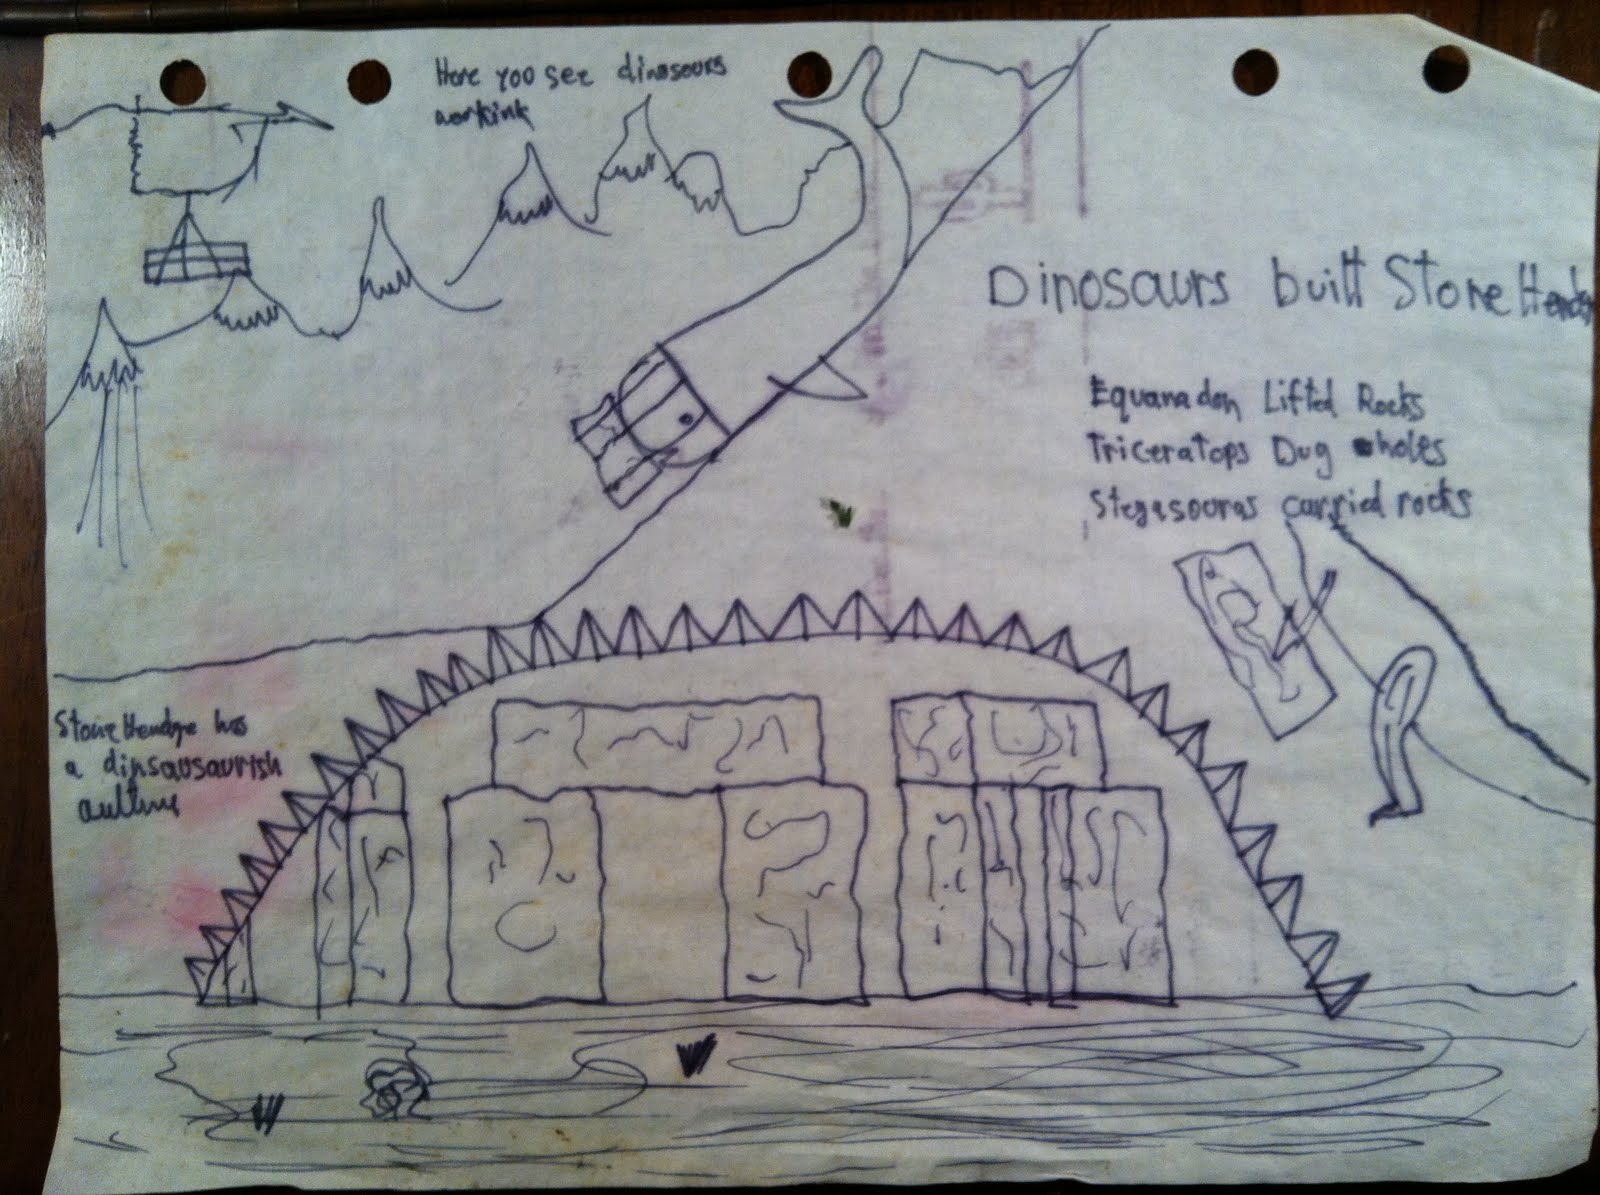 Here you see dinosours
workink
Dinosaurs built Stone Hendge
Equanadon Lifted Rocks
Triceratops Dug holes
Stegasouras carried rocks
Stone Hendge has
a dinsausaurish
aulture